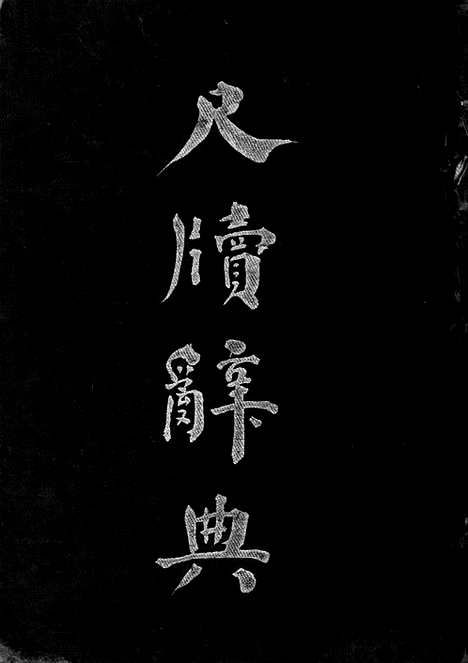 尺牘辭典